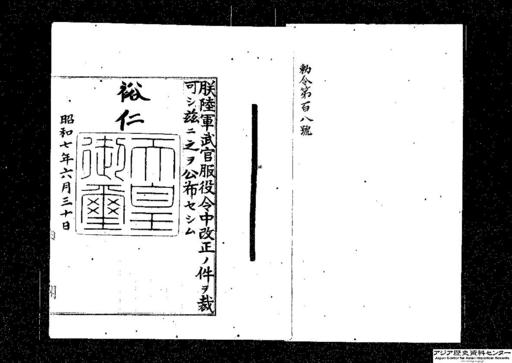 勅令第百八號
朕陸軍武官服役令中改正ノ件ヲ裁
可シ茲ニ之ヲ公布セシム
裕仁
天皇
御璽
昭和七年六月三十日
アジア歴史資料センター
Japan Center for Asian Historical Records